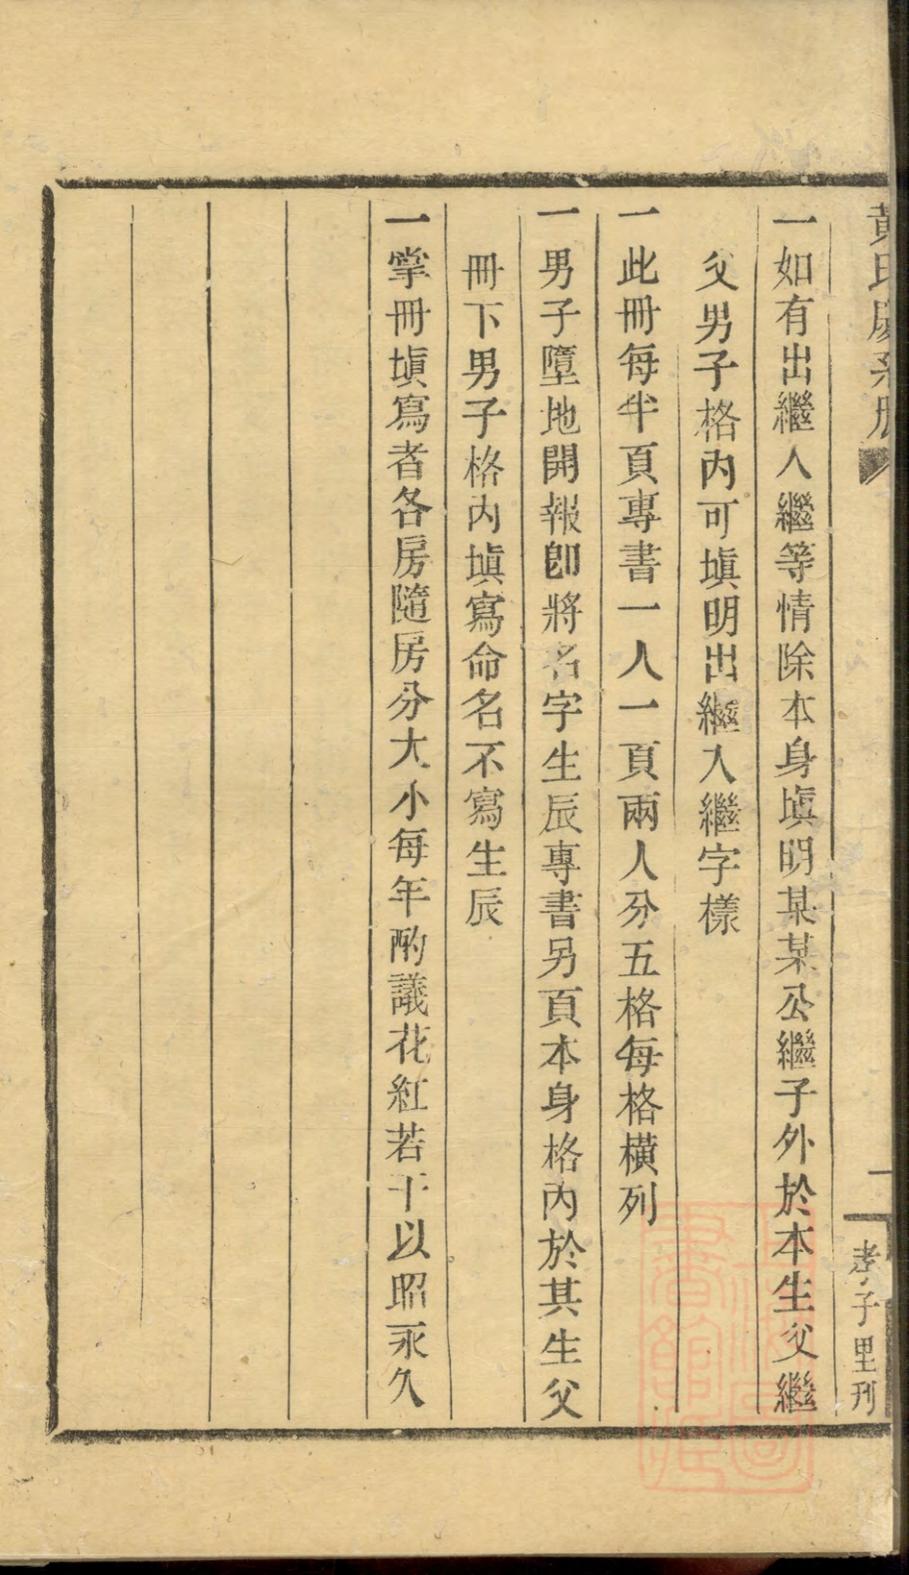 黃氏慶系册
一
孝子里刋
一如有出繼入繼等情除本身塡明某某公繼子外於本生父繼
父男子格內可塡明出繼入繼字樣
一此冊每半頁專書一人一頁兩人分五格每格橫列
一男子墮地開報卽將名字生辰專書另頁本身格內於其生父
冊下男子格內塡寫命名不寫生辰
一掌冊塡寫者各房隨房分大小每年酌議花紅若干以昭永久